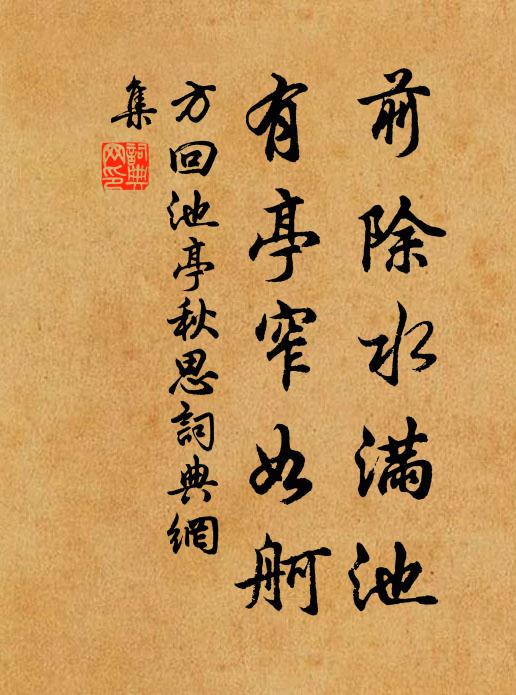 前除水滿池
有亭窄如舸
方回池亭秋思詞典網
集
詞典
网印